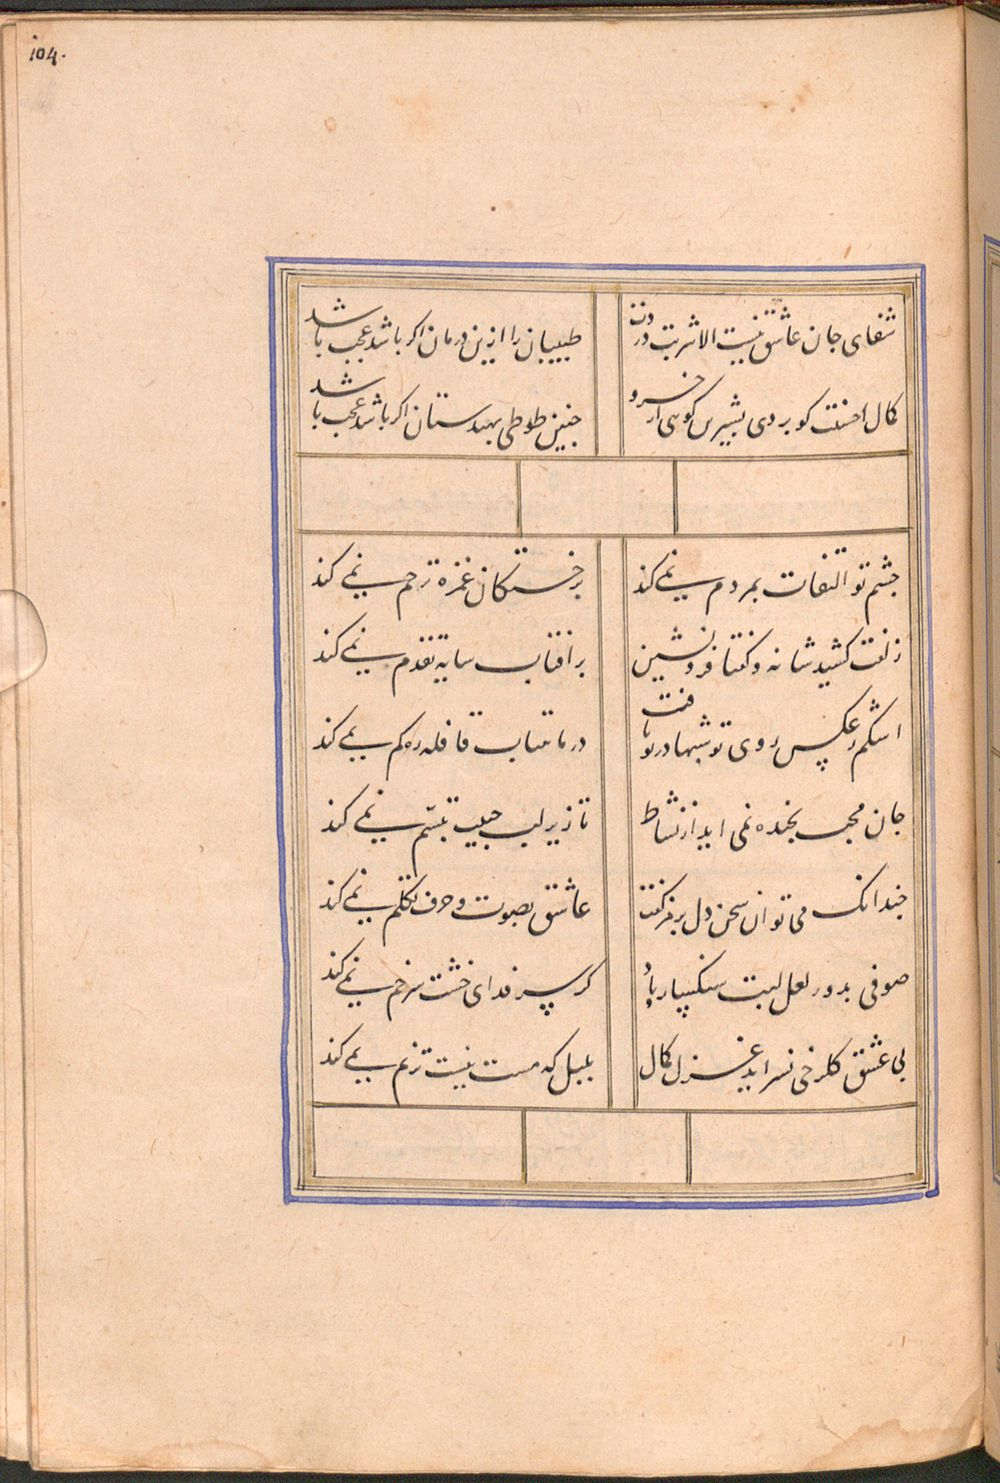 104.
شفای جان عاشق نیست الا شربت دردت
طبیبان را ازین درمان اکر باشد عجب باشد
کمال احسنت کو بردی بشیرین کوهی از خسرو
جنین طوطی بهندستان اکر باشد عجب باشد
جشم تو التفات بمردم نمی کند
بر خستکان غمزه ترحم نمی کند
زلفت کشید شانه و کفتا فرو نشین
بر افتاب سایه تقدم نمی کند
اشکم ز عکس روی تو شبها درو یافت
در ماهتاب قافله ره کم نمی کند
جان محب بخنده نمی اید از نشاط
تا زیر لب حبیب تبسم نمی کند
جندانک می توان سخن دل برمز کفت
عاشق بصوت و حرف تکلم نمی کند
صوفی بدور لعل لبت سنکسار باد
کر سر فدای خشت سر خم نمی کند
بی عشق کلرخی نسراید غزل کمال
بلبل که مست نیست ترنم نمی کند